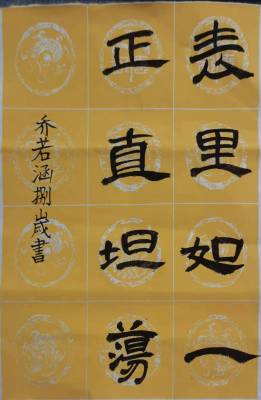 表里如一
正直坦蕩
乔若涵捌歲書